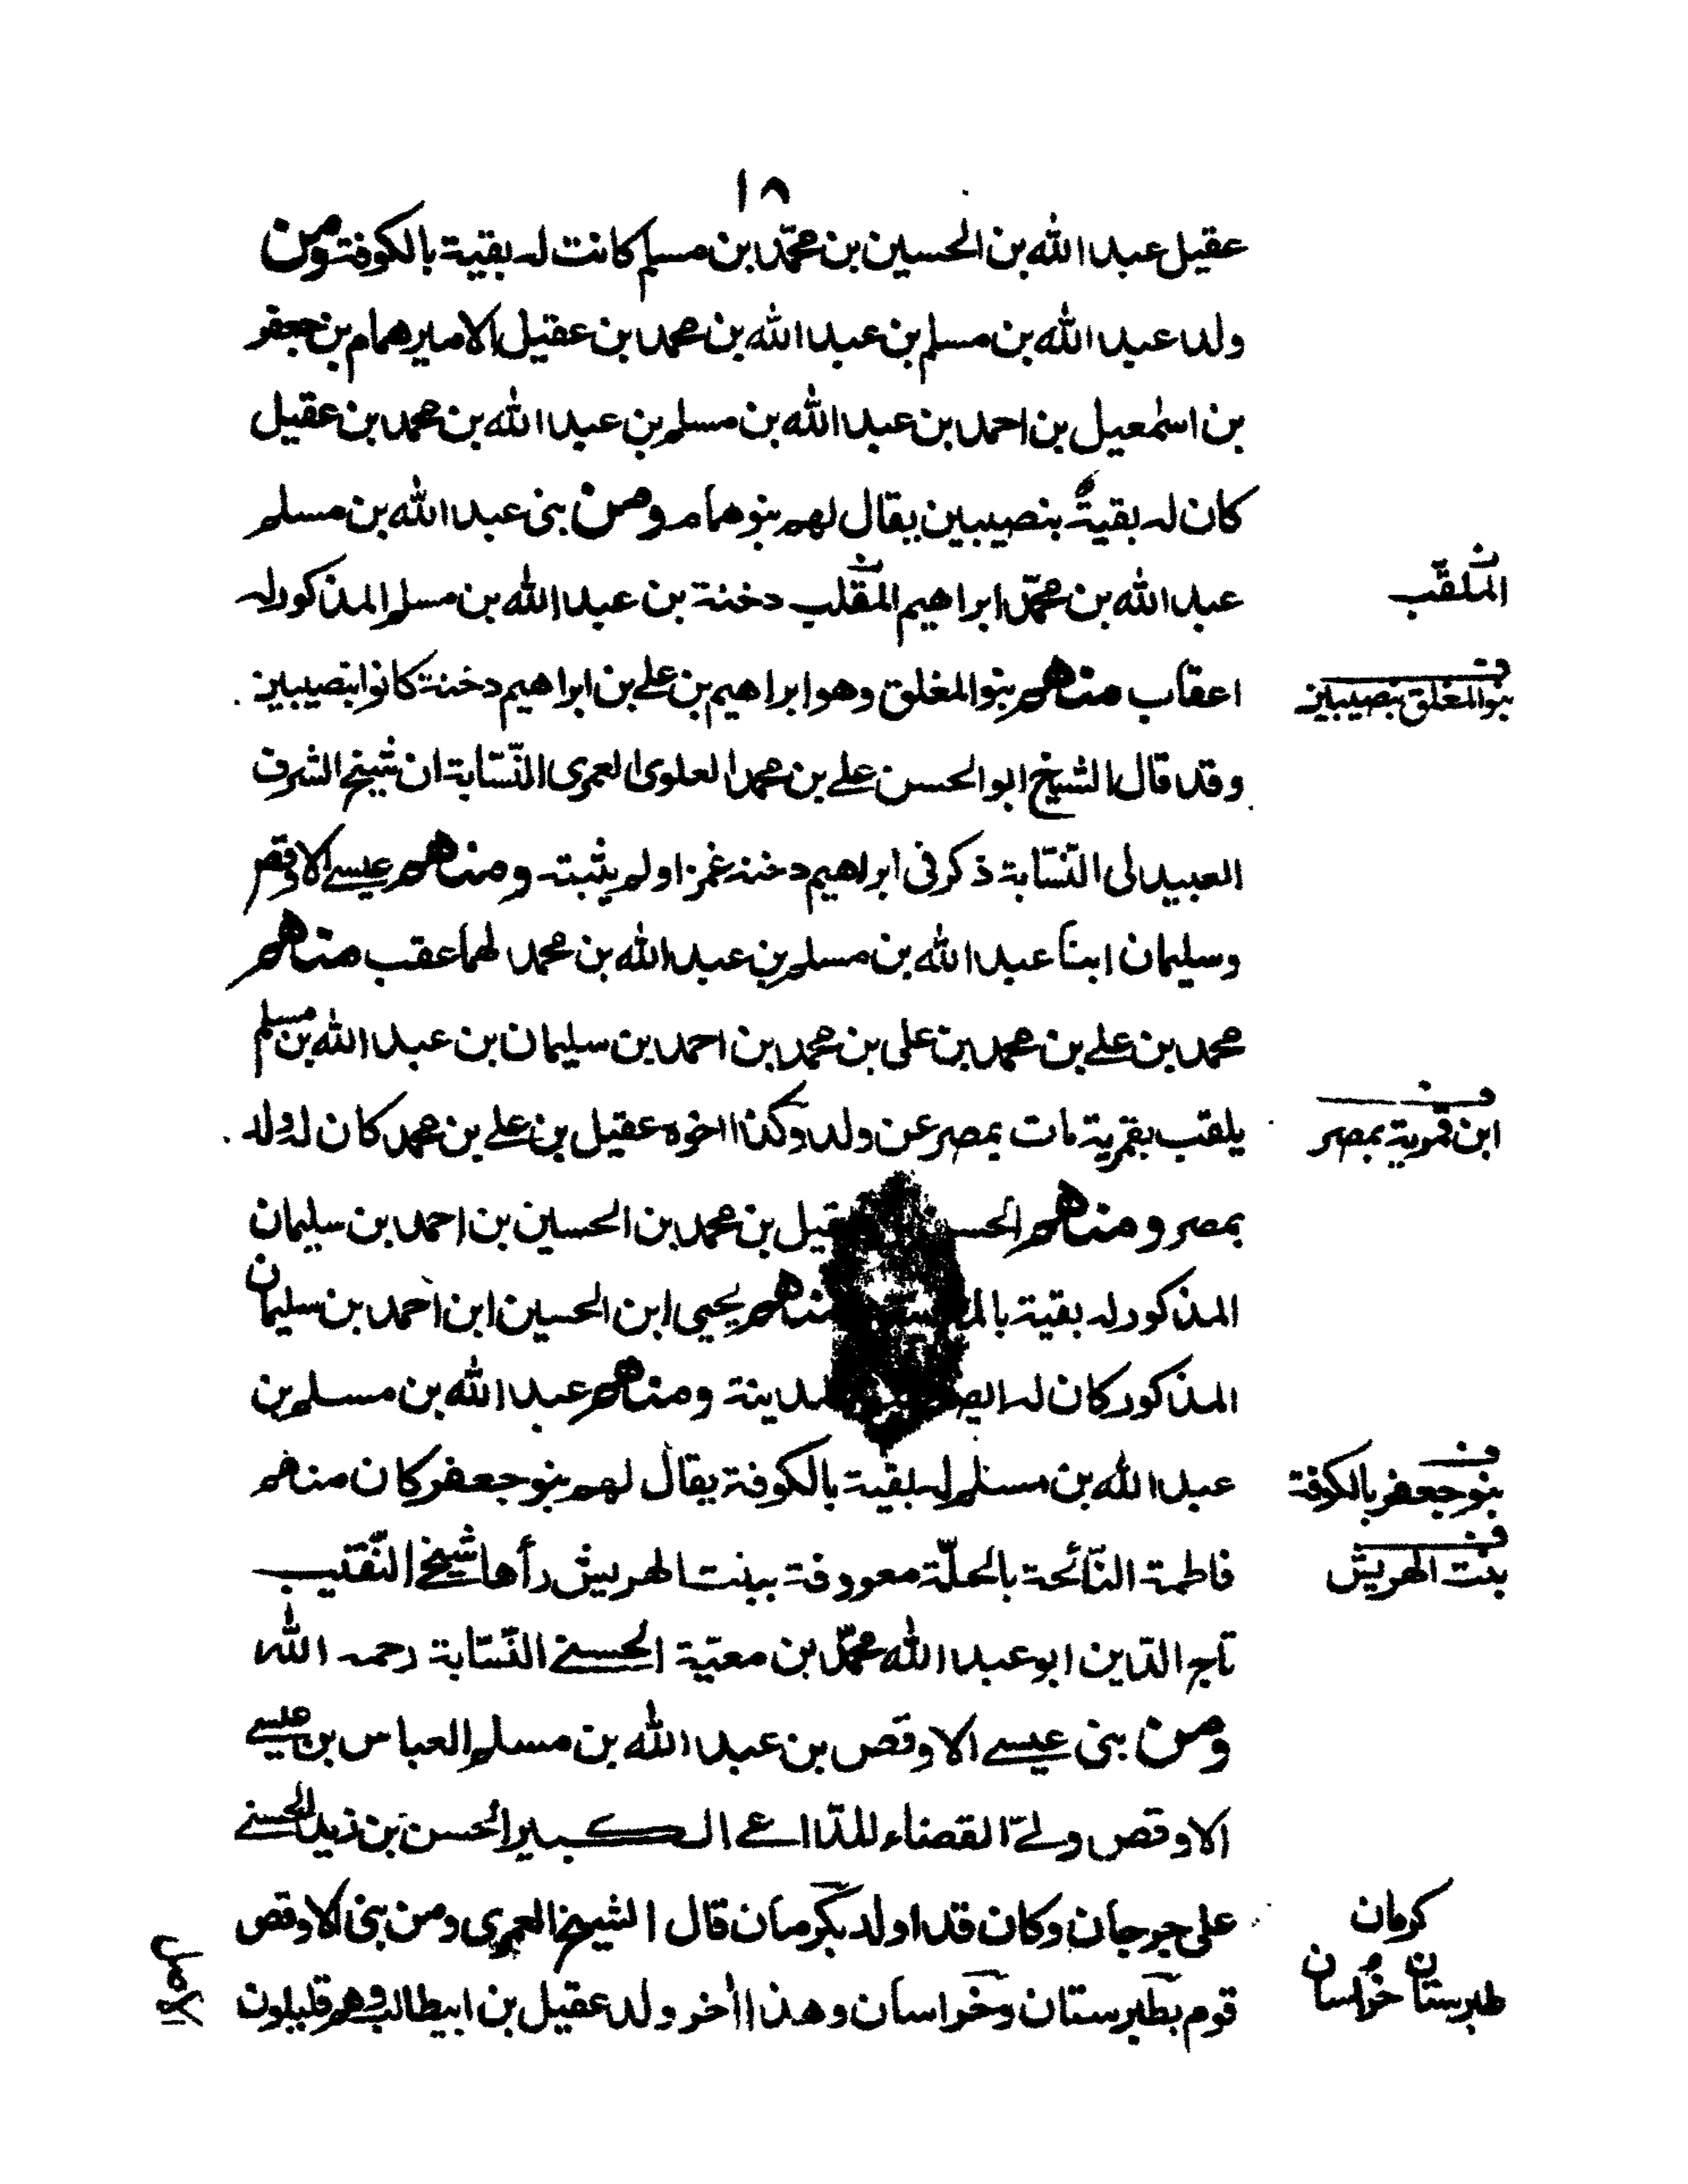 ١٨
عقيل عبد الله بن الحسين بن محمّد بن مسلم كانت له بقية بالكوفة ومن
ولد عبد الله بن مسلم بن عبد الله بن محمد بن عقيل الامير همام بن جعفر
بن اسمٰعيل بن احمد بن عبد الله بن مسلم بن عبد الله بن محمد بن عقيل
كان له بقيةٌ بنصيبين يقال لهم بنو همام ومن بنى عبد الله بن مسلم
عبد الله بن محمّد ابراهيم المقلب دخنة بن عبد الله بن مسلم المذكور له
الملقّب
اعقاب منهم بنو المغلق وهو ابراهيم بن على بن ابراهيم دخنة كانوا بنصيبين
بنو المغلق بنصيبين
وقد قال الشيخ ابو الحسن على بن محمد العلوى العمرى النّسّابة ان شيخ الشرف
العبيدلى النّسّابة ذكر فى ابراهيم دخنة غمزا ولم يثبته ومنهم عيسى الاوقص
وسليمان ابنا عبد الله بن مسلم بن عبد الله بن محمد لهما عقب منهم
محمد بن على بن محمد بن على بن محمد بن احمد بن سليمان بن عبد الله بن مسلم
يلقب بقمرية مات بمصر عن ولد وكذا اخوه عقيل بن على بن محمد كان له ولد
ابن قمرية بمصر
بمصر ومنهم الحسن عقيل بن محمد بن الحسين بن احمد بن سليمان
المذكور له بقية منهم يحيى ابن الحسين ابن احمد بن سليمان
المذكور كان له ومنهم عبد الله بن مسلم بن
عبد الله بن مسلم له بقية بالكوفة يقال لهم بنو جعفر كان منهم
بنو جعفر بالكوفة
فاطمة النّائحة بالحلّة معروفة ببنت الهريش رأها شيخ النّقيب
بنت الهريش
تاج الدّين ابو عبد الله محمّد بن معيّة الحسنى النّسّابة رحمه الله
ومن بنى عيسى الاوقص بن عبد الله بن مسلم العباس بن عيسى
الاوقص ولى القضاء للدّاعى الكبير الحسن بن زيد الحسنى
على جرجان وكان قد اولد بكرمان قال الشيخ العمرى ومن بنى الاوقص
كرمان
قوم بطبرستان وخراسان وهذا اٰخر ولد عقيل بن ابيطالب وهم قليلون
طبرستان خراسان